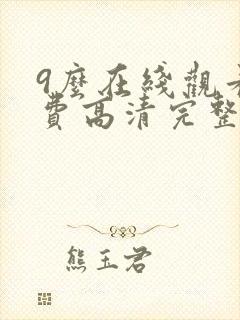 9麼在綫觀
費高清完整
熊玉君